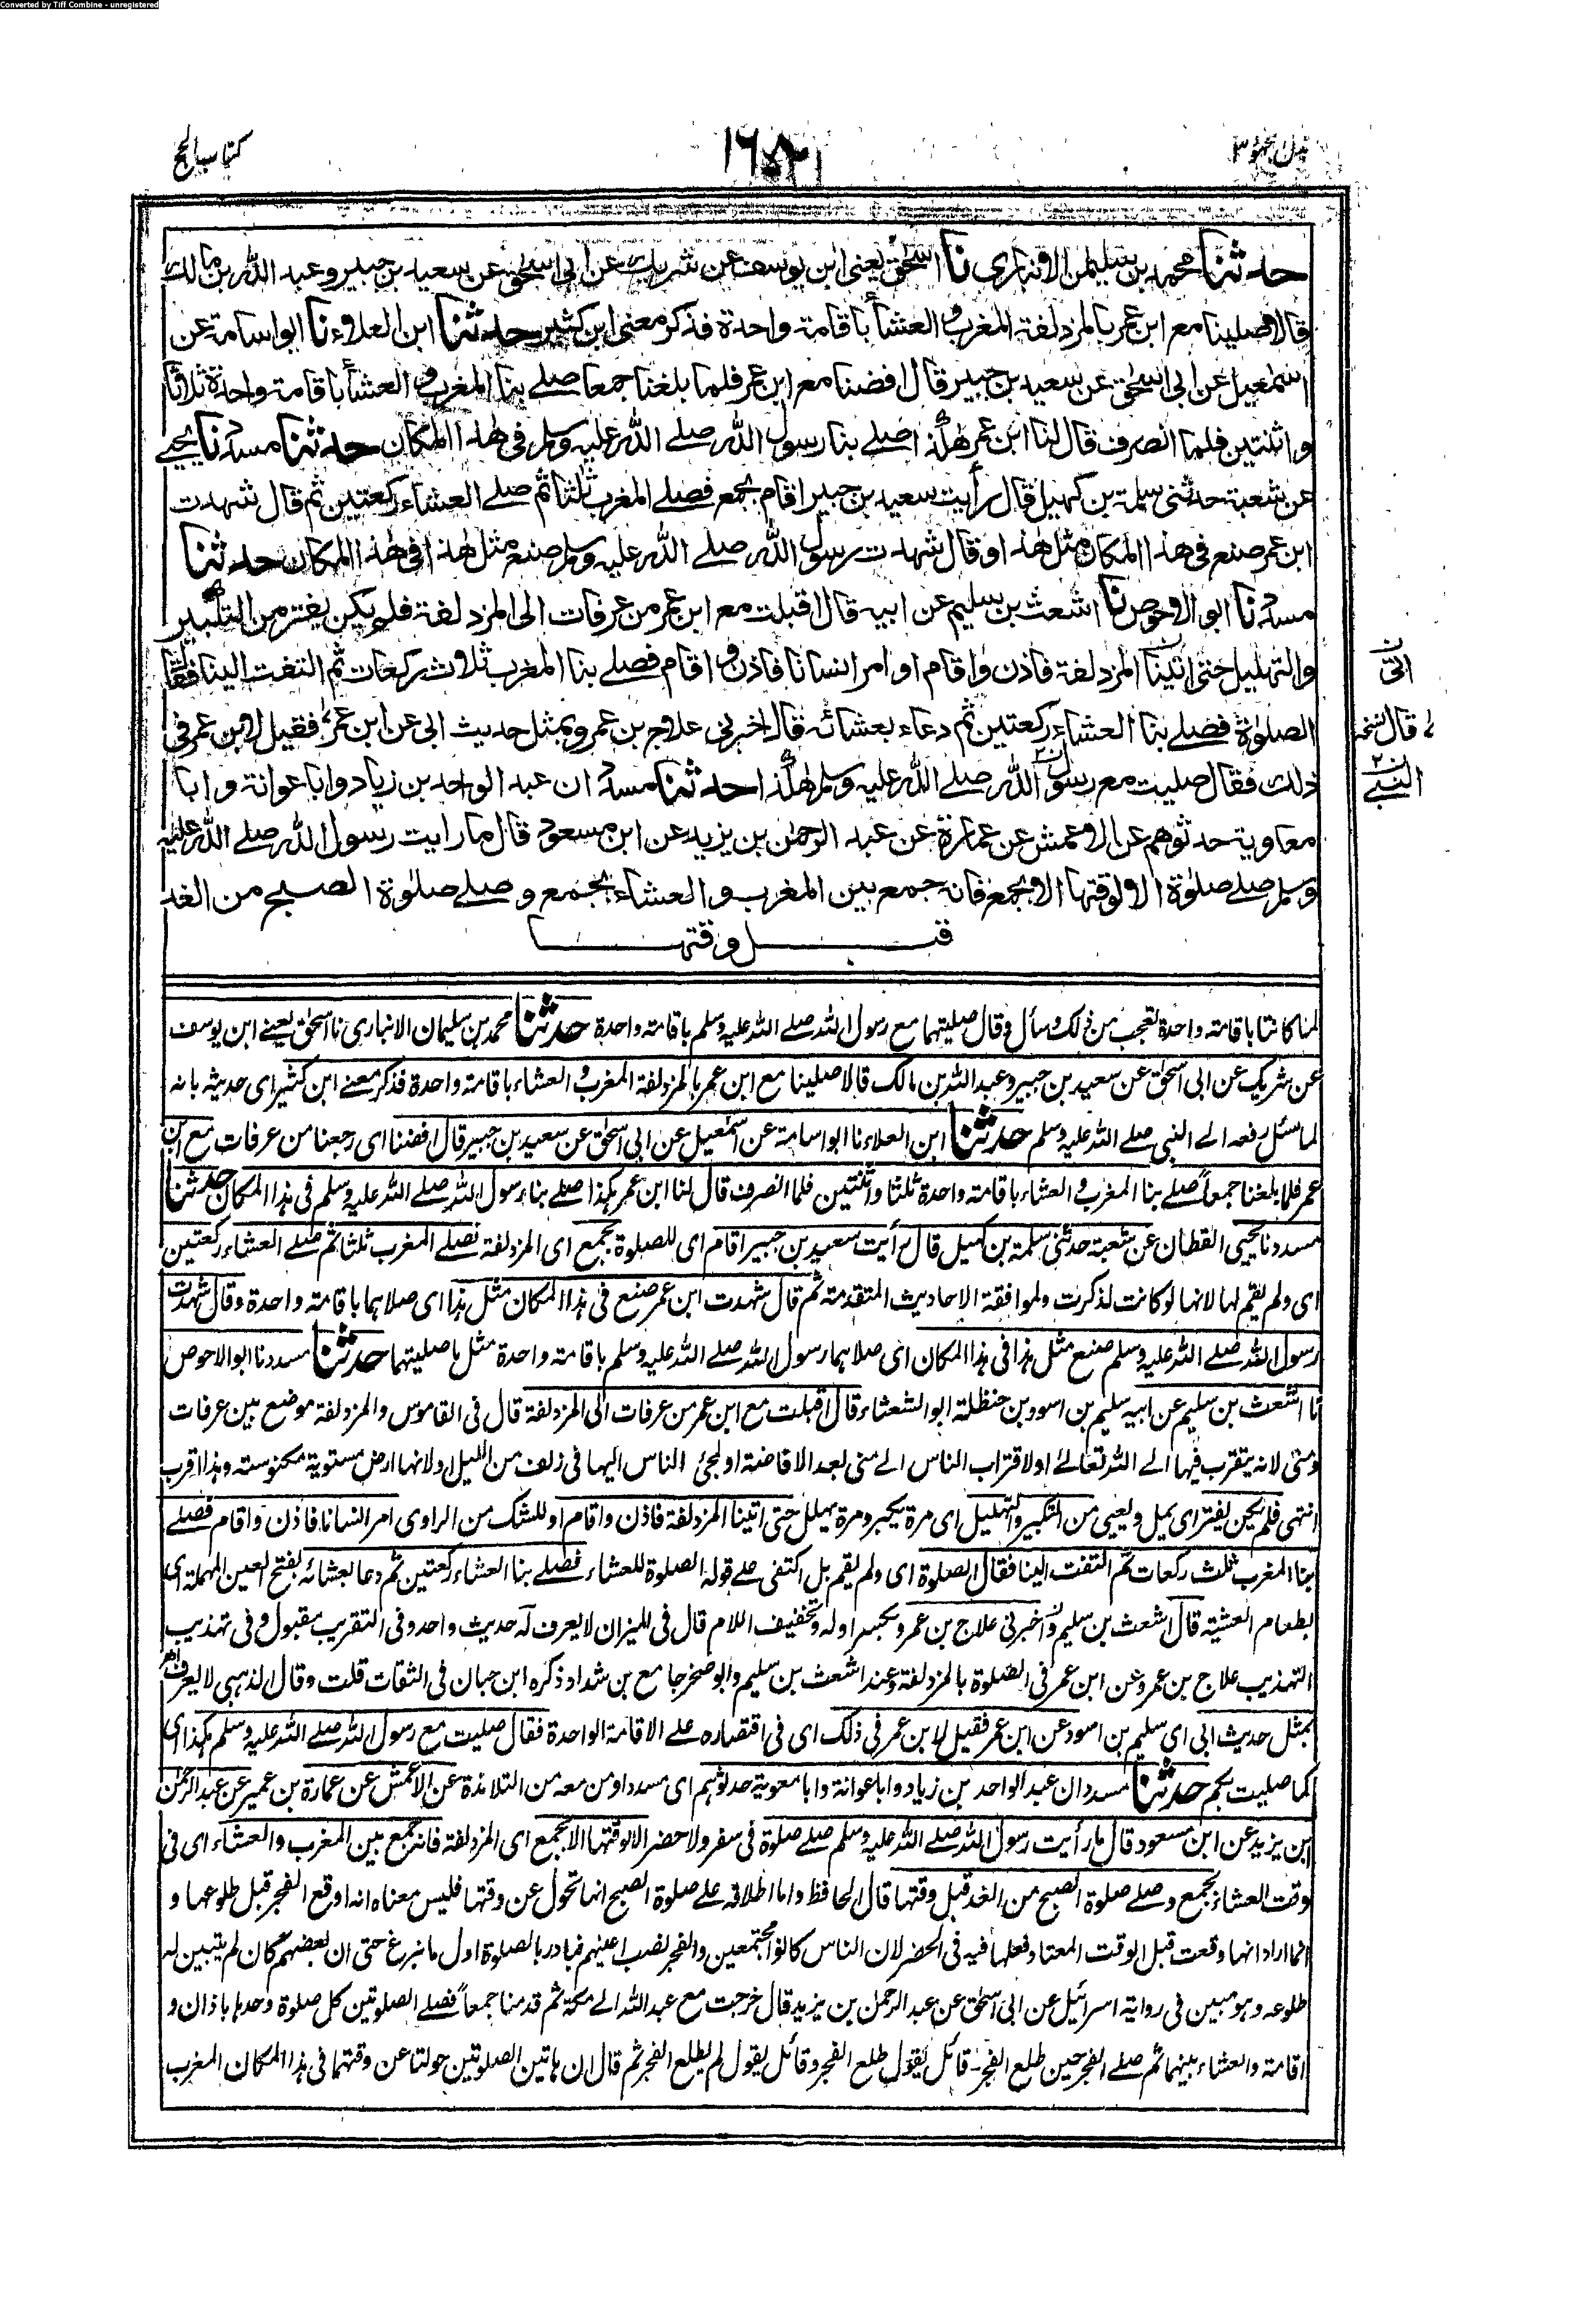 Converted by Tiff Combine - unregistered
كتاب الحج
حدثنا محمد بن سليمن الانباري نا اسحٰق يعنى ابن يوسف عن شريك عن ابى اسحٰق عن سعيد بن جبير وعبد الله بن مالك
قالا صلينا مع ابن عمر بالمزدلفة المغرب والعشاء باقامة واحدة فذكر معنى ابن كثير حدثنا ابن العلاء نا ابواسامة عن
اسمٰعيل عن ابى اسحٰق عن سعيد بن جبير قال افضنا مع ابن عمر فلما بلغنا جمعا صلے بنا المغرب والعشاء باقامة واحدة ثلاثا
واثنتين فلما انصرف قال لنا ابن عمر هٰكذا صلے بنا رسول الله صلے الله عليه وسلم فى هذا المكان حدثنا مسدد نا يحيے
عن شعبة حدثنى سلمة بن كهيل قال رأيت سعيد بن جبير اقام بجمع فصلے المغرب ثلثا ثم صلے العشاء ركعتين ثم قال شهدت
ابن عمر صنع فى هذا المكان مثل هذا وقال شهدت رسول الله صلے الله عليه وسلم صنع مثل هذا فى هذا المكان حدثنا
مسدد نا ابو الاحوص نا اشعث بن سليم عن ابيه قال اقبلت مع ابن عمر من عرفات الى المزدلفة فلم يكن يفتر من التكبير
والتهليل حتى اتينا المزدلفة فاذن واقام او امر انسانا فاذن واقام فصلے بنا المغرب ثلاث ركعات ثم التفت الينا فقال
الصلٰوة فصلے بنا العشاء ركعتين ثم دعاء بعشائه قال اخبرنى علاج بن عمرو بمثل حديث ابى عن ابن عمر فقيل لابن عمر فى
ذلك فقال صليت مع رسول الله صلے الله عليه وسلم هٰكذا حدثنا مسدد ان عبد الواحد بن زياد وابا عوانة وابا
معاوية حدثوهم عن الاعمش عن عمارة عن عبد الرحمٰن بن يزيد عن ابن مسعود قال ما رايت رسول الله صلے الله عليه
وسلم صلے صلٰوة الا لوقتها الا بجمع فانه جمع بين المغرب والعشاء بجمع وصلے صلٰوة الصبح من الغد
قبل وقتها
قال نسخه
النبے
لما كانتا باقامة واحدة تعجب من ذلك وسأل وقال صليتهما مع رسول الله صلے الله عليه وسلم باقامة واحدة حدثنا محمد بن سليمان الانبارى نا اسحٰق يعنے ابن يوسف
عن شريك عن ابى اسحٰق عن سعيد بن جبير وعبد الله بن مالك قالا صلينا مع ابن عمر بالمزدلفة المغرب والعشاء باقامة واحدة فذكر معنے ابن كثير اى حديثه بانه
لما سئل رفعه الے النبى صلے الله عليه وسلم حدثنا ابن العلاء نا ابواسامة عن اسمٰعيل عن ابى اسحٰق عن سعيد بن جبير قال افضنا اى رجعنا من عرفات مع ابن
عمر فلما بلغنا جمعاً صلے بنا المغرب والعشاء باقامة واحدة ثلثا واثنتين فلما انصرف قال لنا ابن عمر هكذا صلے بنا رسول الله صلے الله عليه وسلم فى هذا المكان حدثنا
مسدد نا يحيى القطان عن شعبة حدثنى سلمة بن كهيل قال رأيت سعيد بن جبير اقام اى للصلوة بجمع اى المزدلفة فصلے المغرب ثلثا ثم صلے العشاء ركعتين
اى ولم يقم لها لانها لو كانت لذكرت ولموافقة الاحاديث المتقدمة ثم قال شهدت ابن عمر صنع فى هذا المكان مثل هذا اى صلاهما باقامة واحدة وقال شهدت
رسول الله صلے الله عليه وسلم صنع مثل هذا فى هذا المكان اى صلاهما رسول الله صلے الله عليه وسلم باقامة واحدة مثل ما صليتهما حدثنا مسدد نا ابوالاحوص
نا اشعث بن سليم عن ابيه سليم بن اسود بن حنظلة ابوالشعثاء قال اقبلت مع ابن عمر من عرفات الى المزدلفة قال فى القاموس والمزدلفة موضع بين عرفات
ومنى لانه يتقرب فيها الے الله تعالے او لاقتراب الناس الے منى بعد الافاضة او لمجئ الناس اليها فى زلف من الليل او لانها ارض مستوية مكنوسة وهذا اقرب
انتهى فلم يكن يفتر اى يمل ويعيى من التكبير والتهليل اى مرة يكبر ومرة يهلل حتى اتينا المزدلفة فاذن واقام او للشك من الراوى امر انسانا فاذن واقام فصلے
بنا المغرب ثلث ركعات ثم التفت الينا فقال الصلوة اى ولم يقم بل اكتفى علے قوله الصلوة للعشاء فصلے بنا العشاء ركعتين ثم دعا بعشائه بفتح العين المهملة اى
بطعام العشية قال اشعث بن سليم واخبرنى علاج بن عمرو بكسر اوله وتخفيف اللام قال فى الميزان لا يعرف له حديث واحد وفى التقريب مقبول وفى تهذيب
التهذيب علاج بن عمرو عن ابن عمر فى الصلوة بالمزدلفة وعنه اشعث بن سليم وابوصخر جامع بن شداد ذكره ابن حبان فى الثقات قلت وقال الذهبى لا يعرف
بمثل حديث ابى اى سليم بن اسود عن ابن عمر فقيل لابن عمر فى ذلك اى فى اقتصاره علے الاقامة الواحدة فقال صليت مع رسول الله صلے الله عليه وسلم هكذا اى
كما صليت بكم حدثنا مسدد ان عبد الواحد بن زياد وابا عوانة وابا معوية حدثوهم اى مسددا ومن معه من التلامذة عن الاعمش عن عمارة بن عمير عن عبد الرحمٰن
ابن يزيد عن ابن مسعود قال ما رأيت رسول الله صلے الله عليه وسلم صلے صلوة فى سفر ولا حضر الا لوقتها الا بجمع اى المزدلفة فانه جمع بين المغرب والعشاء اى فى
وقت العشاء بجمع وصلے صلوة الصبح من الغد قبل وقتها قال الحافظ واما اطلاقه علے صلوة الصبح انها تحول عن وقتها فليس معناه انه اوقع الفجر قبل طلوعها و
انما اراد انها وقعت قبل الوقت المعتاد فعلها فيه فى الحضر لان الناس كانوا مجتمعين والفجر نصب اعينهم فبادر بالصلوة اول ما بزغ حتى ان بعضهم كان لم يتبين له
طلوعه وهو مبين فى رواية اسرائيل عن ابى اسحٰق عن عبد الرحمٰن بن يزيد قال خرجت مع عبد الله الے مكة ثم قدمنا جمعاً فصلے الصلوتين كل صلوة وحدها باذان و
اقامة والعشاء بينهما ثم صلے الفجر حين طلع الفجر قائل يقول طلع الفجر وقائل يقول لم يطلع الفجر ثم قال ان هاتين الصلوتين حولتا عن وقتهما فى هذا المكان المغرب